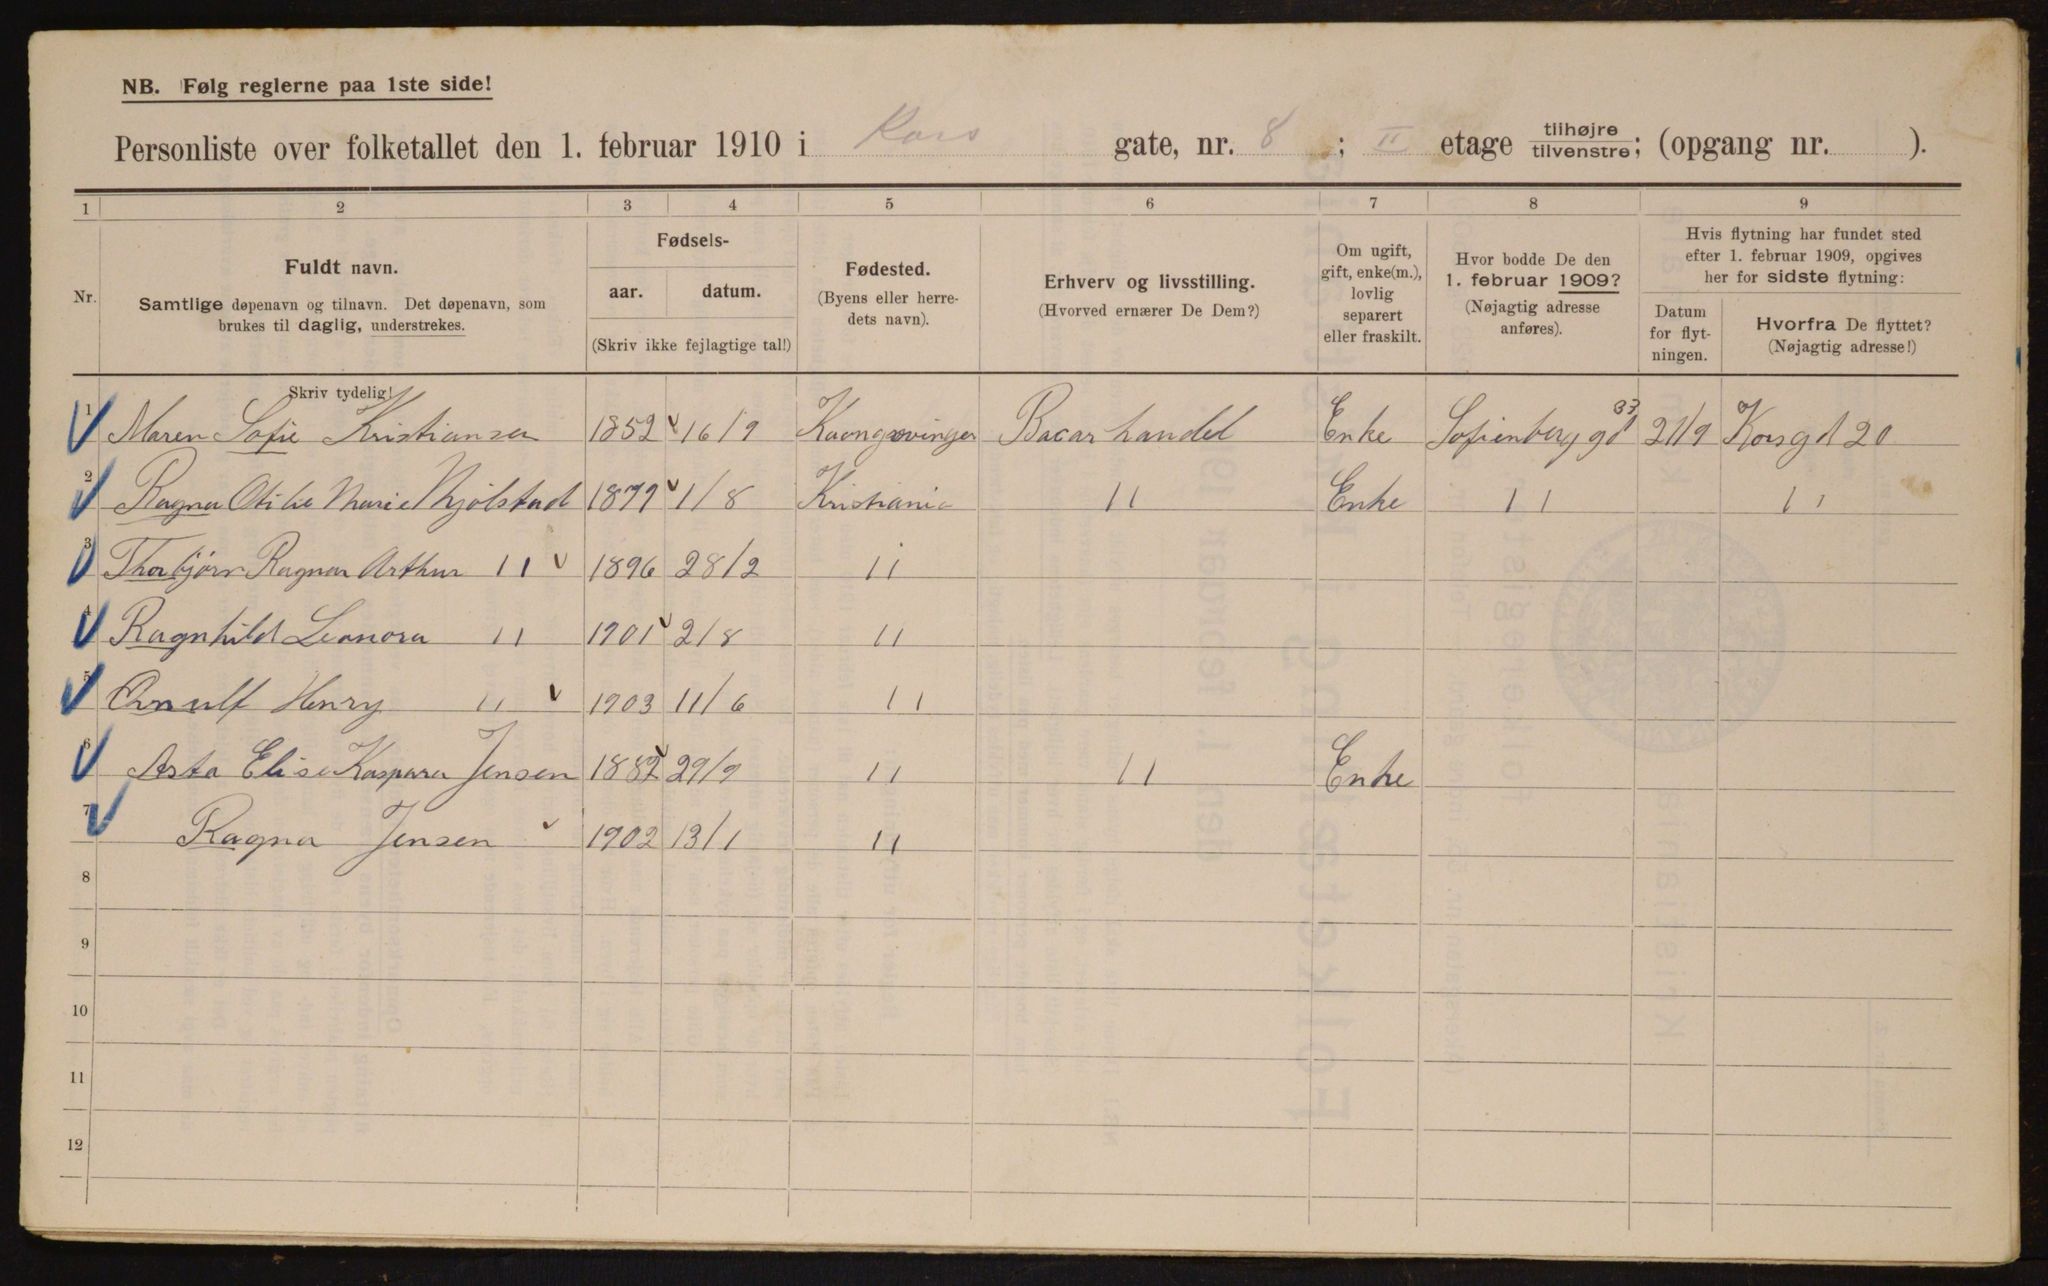 NB. Følg reglerne paa 1ste side!
Personliste over folketallet den 1. februar 1910 i Kors gate, nr. 8 ; II etage tilhøjre tilvenstre; (opgang nr. ).
1 2 3 4 5 6 7 8 9
Nr.
Fuldt navn.
Samtlige døpenavn og tilnavn. Det døpenavn, som
brukes til daglig, understrekes.
Skriv tydelig!
Fødsels-
aar. datum.
(Skriv ikke fejlagtige tal!)
Fødested.
(Byens eller herre-
dets navn).
Erhverv og livsstilling.
(Hvorved ernærer De Dem?)
Om ugift,
gift, enke(m.),
lovlig
separert
eller fraskilt.
Hvor bodde De den
1. februar 1909?
(Nøjagtig adresse
anføres).
Hvis flytning har fundet sted
efter 1. februar 1909, opgives
her for sidste flytning:
Datum
for flyt-
ningen.
Hvorfra De flyttet?
(Nøjagtig adresse!)
1 Maren Sofie Kristiansen 1852 16/9 Kongsvinger Basar handel Enke Sofienberg gd 37 21/9 Korsgd 20
2 Ragna Otilie Marie Mjølstad 1877 1/8 Kristiania 11 Enke 11 11
3 Thorbjørn Ragnar Arthur 11 1896 28/2 11
4 Ragnhild Leonora 11 1901 2/8 11
5 Arnulf Henry 11 1903 11/6 11
6 Asta Elise Kaspara Jensen 1882 29/9 11 11 Enke
7 Ragna Jensen 1902 13/1 11
8
9
10
11
12